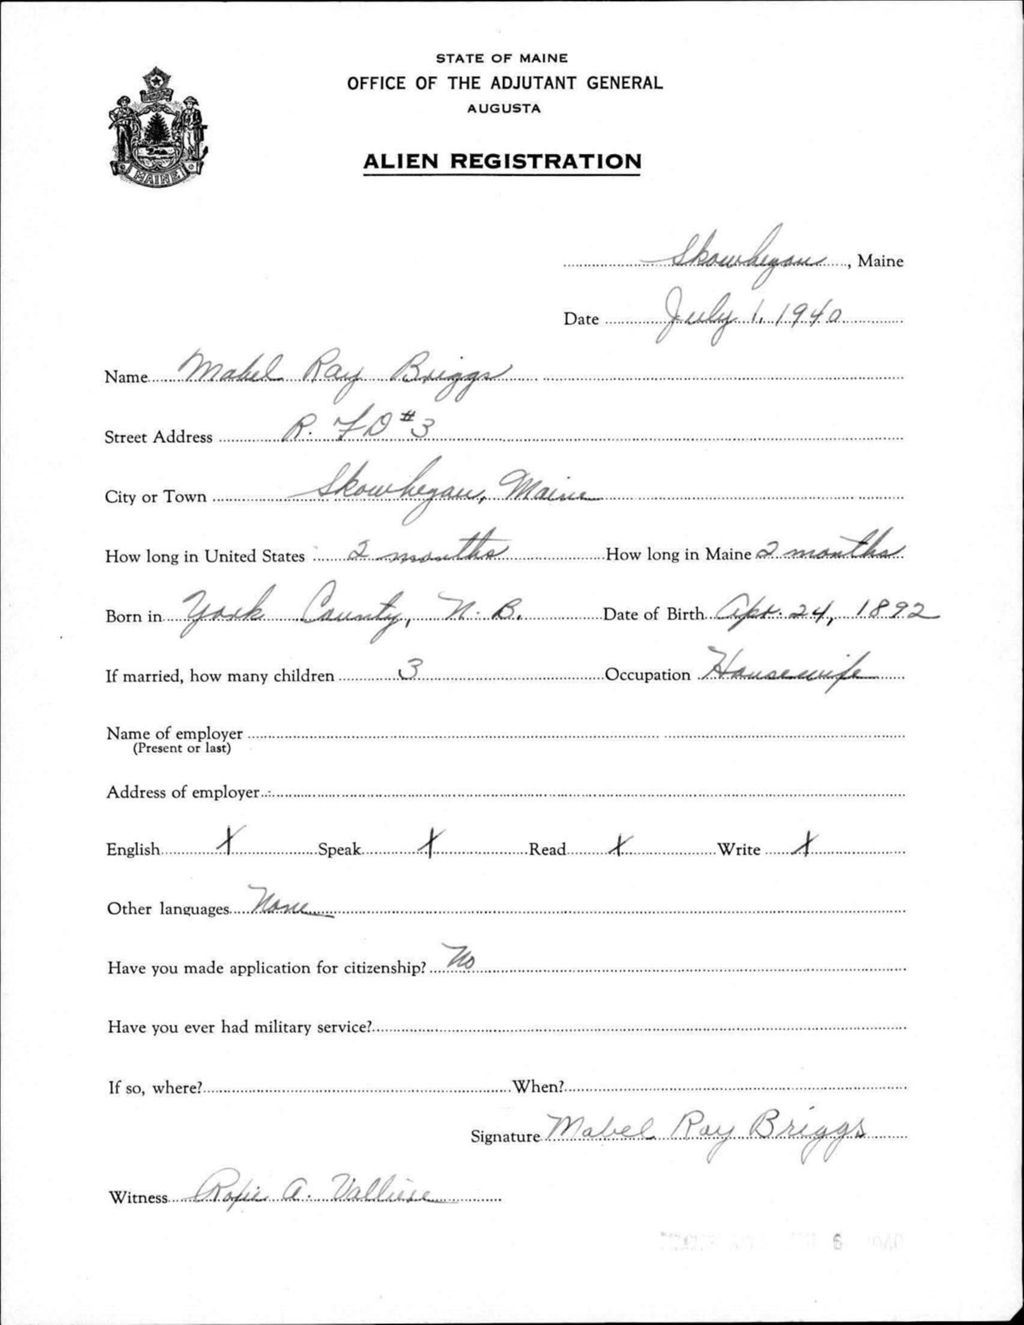 STATE OF MAINE
OFFICE OF THE ADJUTANT GENERAL
AUGUSTA
ALIEN REGISTRATION
MAINE
Skowhegan, Maine
Date July 1, 1940
Name Mabel Ray Briggs
Street Address R. F D #3
City or Town Skowhegan, Maine
How long in United States 2 months How long in Maine 2 months
Born in York County, N. B. Date of Birth Apr. 24, 1892
If married, how many children 3 Occupation Housewife
Name of employer
(Present or last)
Address of employer
English X Speak X Read X Write X
Other languages None
Have you made application for citizenship? No
Have you ever had military service?
If so, where? When?
Signature Mabel Ray Briggs
Witness A.